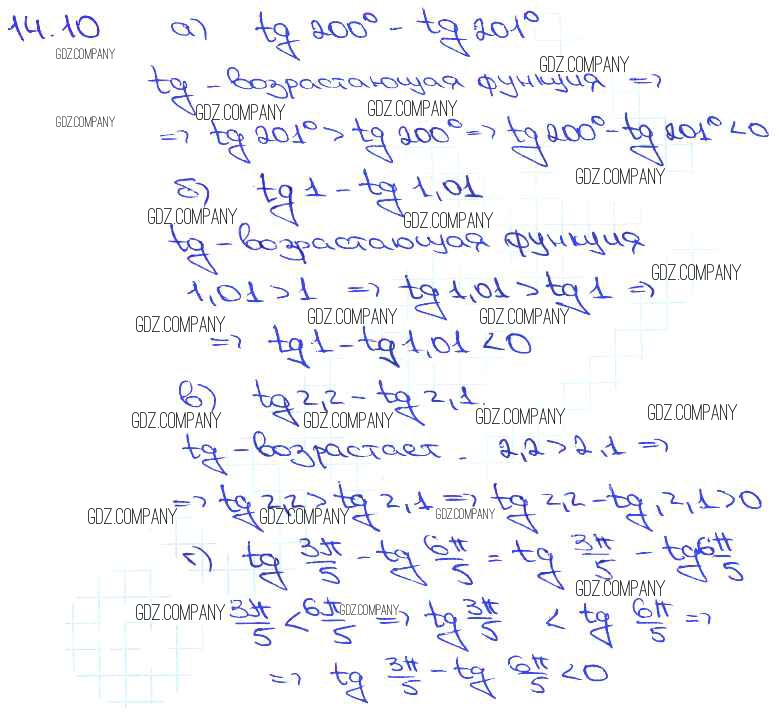 14.10 а) tg 200° - tg 201°
GDZ.COMPANY
GDZ.COMPANY
tg - возрастающая функция =>
GDZ.COMPANY GDZ.COMPANY
GDZ.COMPANY
=> tg 201° > tg 200° => tg 200° - tg 201° < 0
GDZ.COMPANY
б) tg 1 - tg 1,01
GDZ.COMPANY GDZ.COMPANY
tg - возрастающая функция
GDZ.COMPANY
1,01 > 1 => tg 1,01 > tg 1 =>
GDZ.COMPANY GDZ.COMPANY GDZ.COMPANY
=> tg 1 - tg 1,01 < 0
в) tg 2,2 - tg 2,1.
GDZ.COMPANY GDZ.COMPANY GDZ.COMPANY GDZ.COMPANY
tg - возрастает. 2,2 > 2,1 =>
=> tg 2,2 > tg 2,1 => tg 2,2 - tg 2,1 > 0
GDZ.COMPANY GDZ.COMPANY GDZ.COMPANY
г) tg 3π/5 - tg 6π/5 = tg 3π/5 - tg 6π/5
GDZ.COMPANY
GDZ.COMPANY GDZ.COMPANY
3π/5 < 6π/5 => tg 3π/5 < tg 6π/5 =>
=> tg 3π/5 - tg 6π/5 < 0